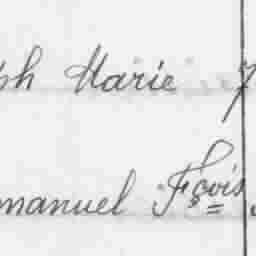 ph Marie 7
manuel Fçois